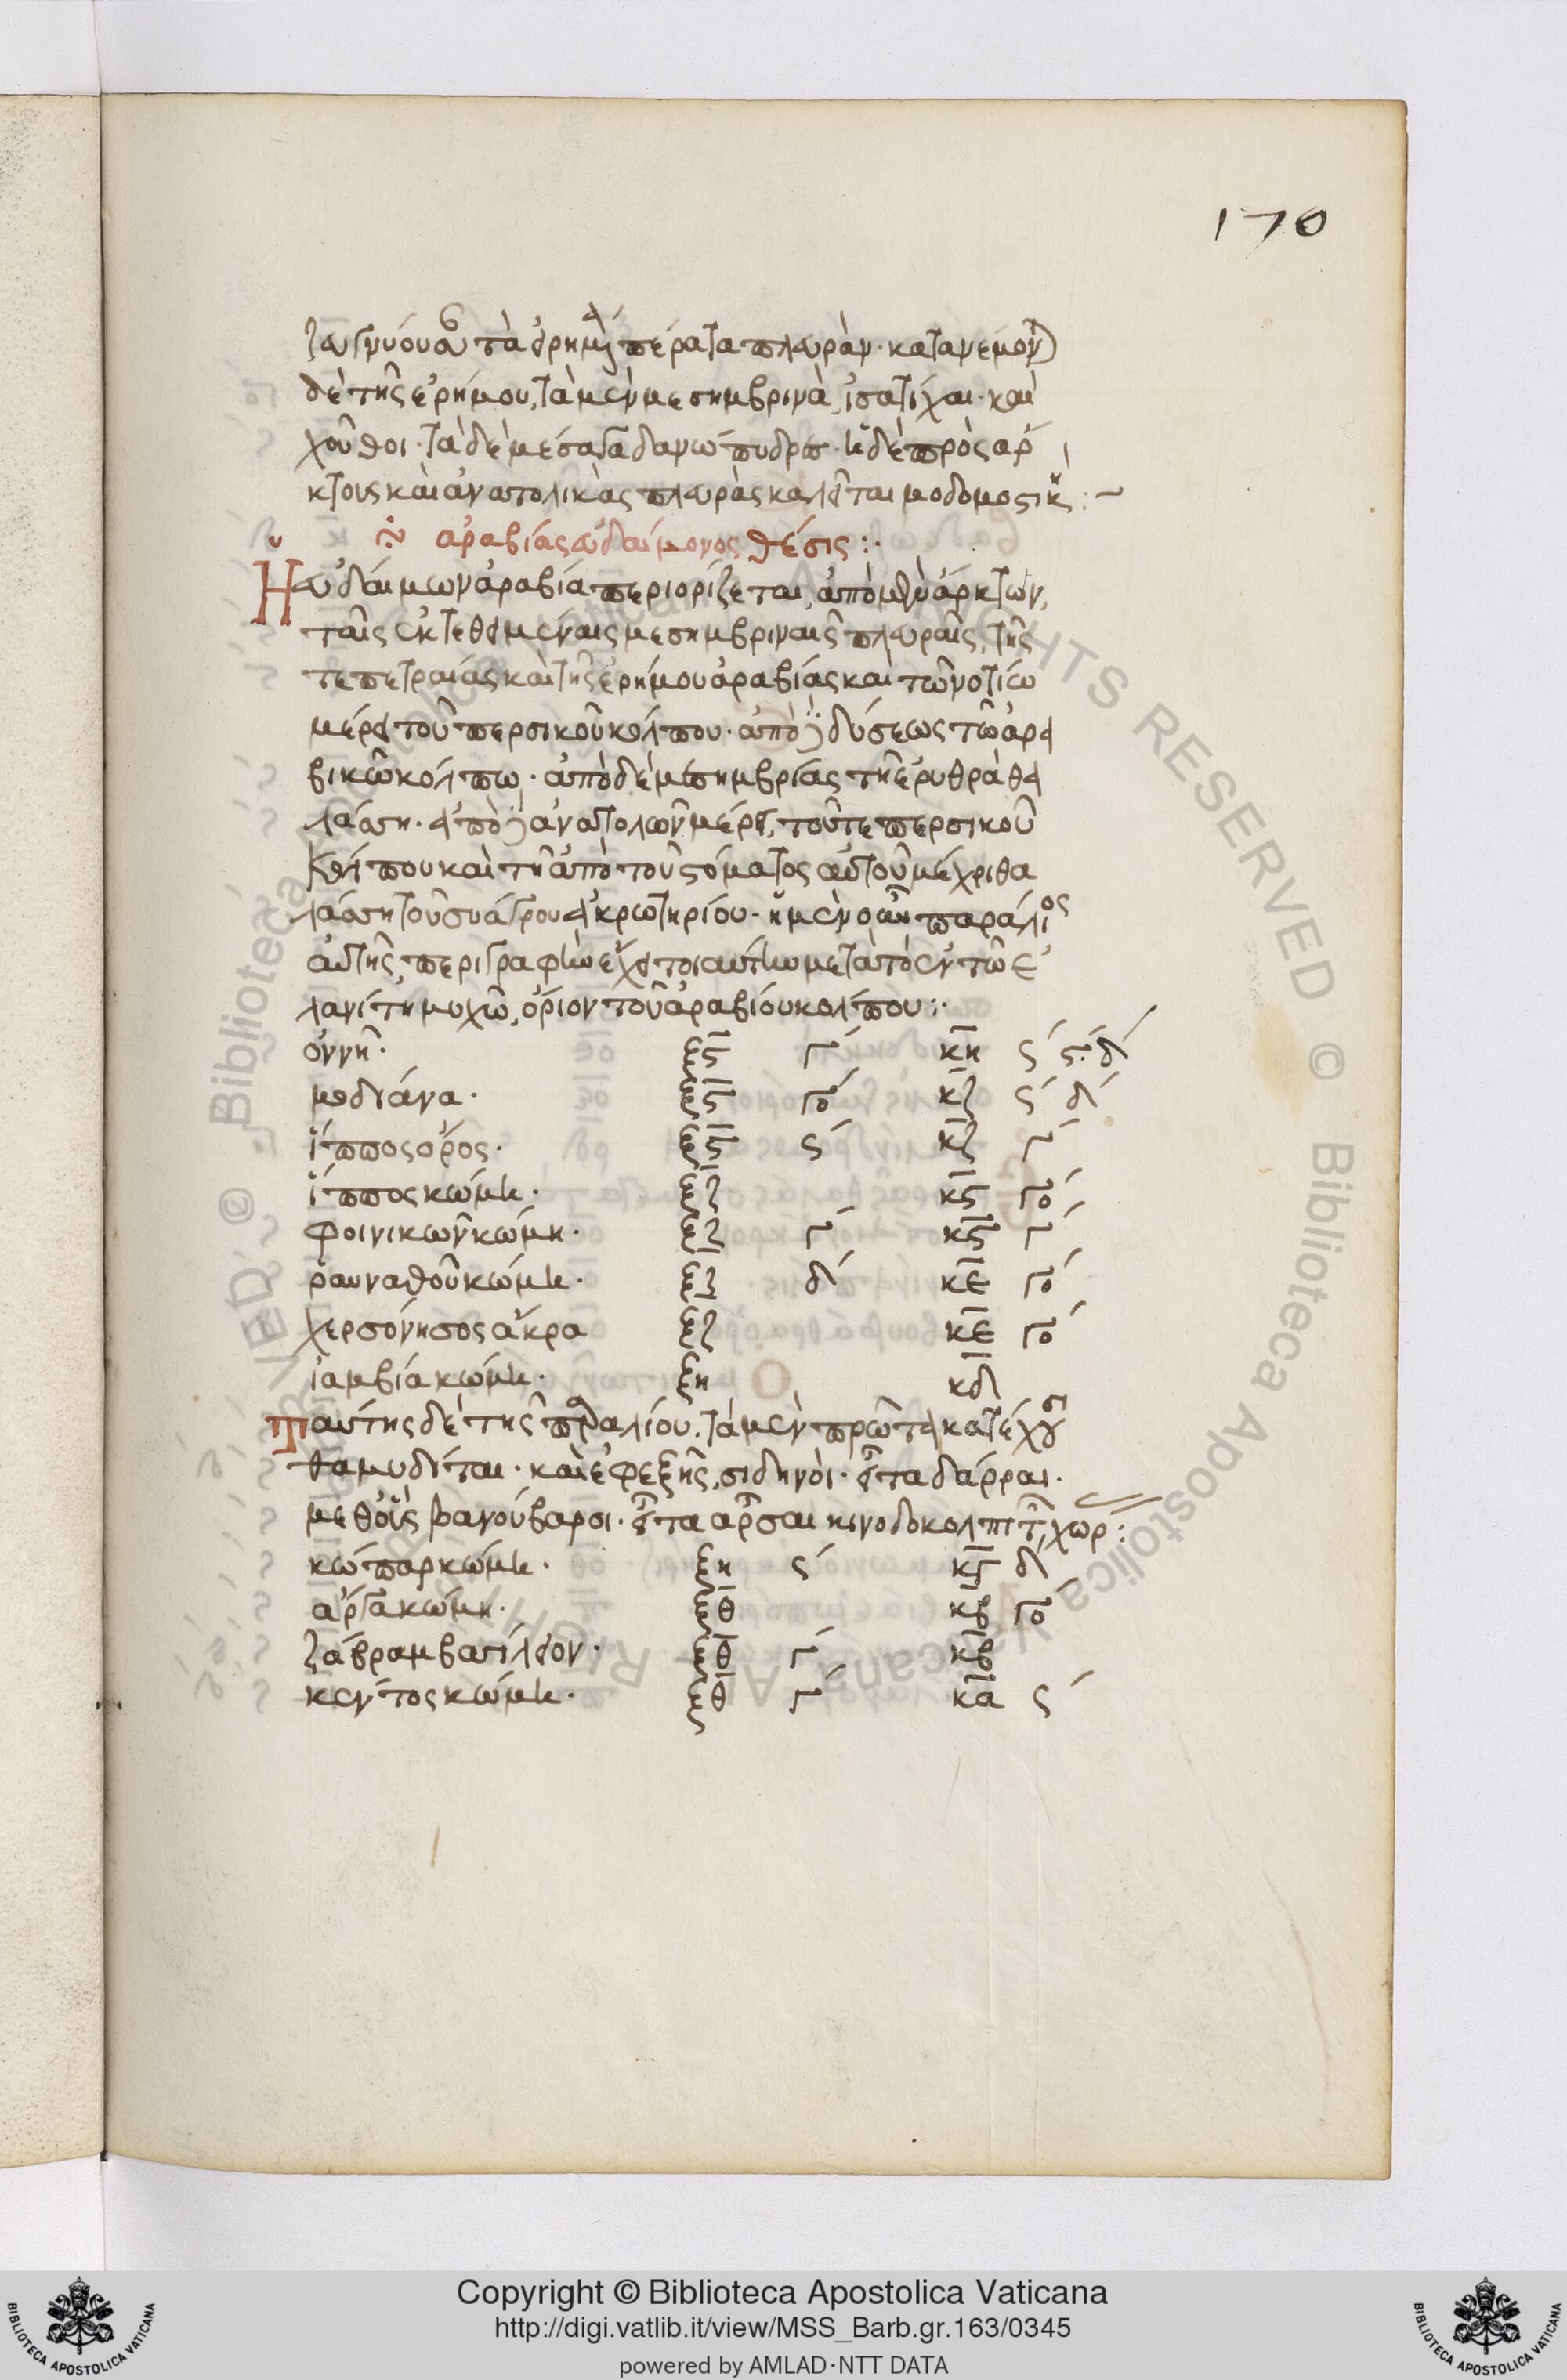 170
ζευγνύουσα τὰ εἰρημένα πέρατα πλευράν· κατανέμονται
δὲ τῆς ἐρήμου, τὰ μὲν μεσημβρινὰ, ἰσατίχαι· καὶ
χοῦθοι· τὰ δὲ μέσα
κτους καὶ ἀνατολικὰς πλευρὰς καλεῖται
ἀραβίας εὐδαίμονος θέσις :·
Ἡ εὐδαίμων ἀραβία περιορίζεται, ἀπὸ μὲν ἄρκτων,
ταῖς ἐκτεθειμέναις μεσημβριναῖς πλευραῖς, τῆς
τε πετραίας καὶ τῆς ἐρήμου ἀραβίας καὶ τῶ νοτίω
μέρει τοῦ περσικοῦ κόλπου· ἀπὸ δὲ δύσεως τῶ ἀρα
βικῶ κόλπω· ἀπὸ δὲ μεσημβρίας τῆ ἐρυθρᾶ θα
λάσση· ἀπὸ δὲ ἀνατολῶν μέρει, τοῦ τε περσικοῦ
κόλπου καὶ τῆ ἀπὸ τοῦ στόματος αὐτοῦ μέχρι θα
λάσση τοῦ συάγρου ἀκρωτηρίου· ἡ μὲν οὖν παράλιος
αὐτῆς, περιγραφὴν ἔχει τοιαύτην μετὰ τὸ ἐν τῶ ἐ
λανίτη μυχῶ, ὅριον τοῦ ἀραβίου κόλπου :·
ὄννη· ξϛ γ´ κη ϛ´ ϛ´ δ´
μοδιάνα· ξϛ γο´ κζ ϛ´ δ´
ἵππος ὄρος· ξϛ ϛ´ κζ γ´
ἵππος κώμη· ξζ κϛ γο´
φοινικῶν κώμη· ξζ γ´ κϛ γ´
ῥαυναθοῦ κώμη· ξζ δ´ κε γο´
χερσόνησος ἄκρα ξζ κε γο´
ἰαμβία κώμη· ξη κδ
Ταύτης δὲ τῆς παραλίου. τὰ μὲν πρῶτα κατέχουσι
θαμυδίται· καὶ ἐφεξῆς, σιδηνοί· εἶτα δάρραι·
μεθ' οὓς βανούβαροι· εἶτα ἄρσαι κινοδοκολπιτῶν χώρα :
κώπαρ κώμη· ξη ϛ´ κγ δ´
ἄργα κώμη· ξθ κβ γο´
ζάβραμ βασίλειον· ξθ γ´ κβ
κεντος κώμη· ξθ γ´ κα ϛ´
Copyright © Biblioteca Apostolica Vaticana
http://digi.vatlib.it/view/MSS_Barb.gr.163/0345
powered by AMLAD·NTT DATA